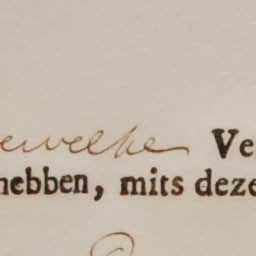 ewelke Ve
hebben, mits deze